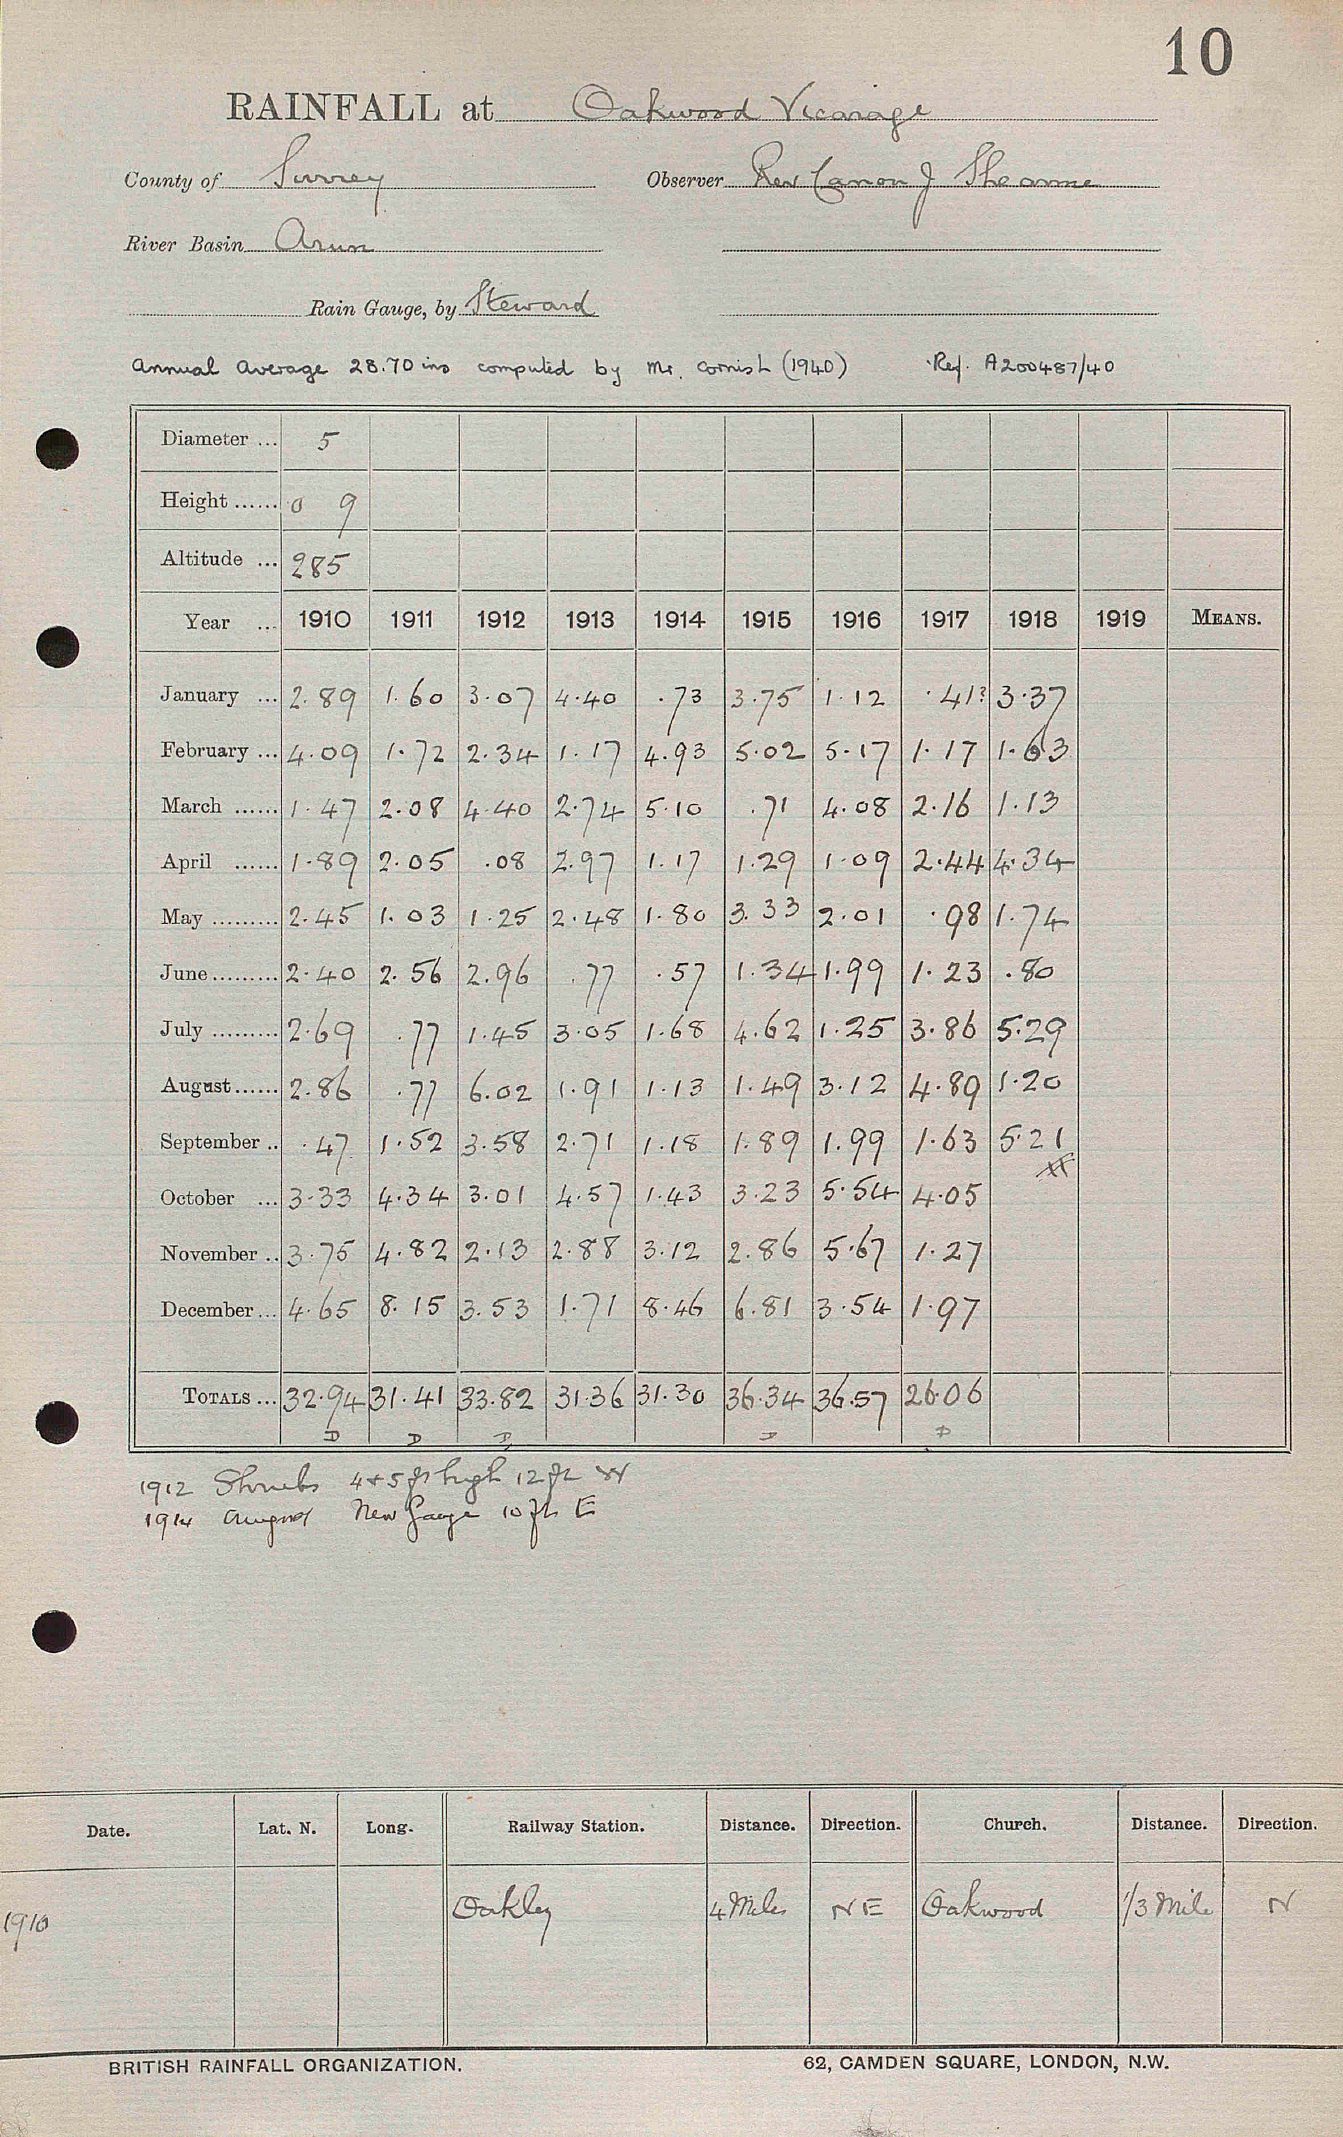 10
RAINFALL at Oakwood Vicarage
County of Surrey Observer Rev Canon J Shearme
River Basin Arun
Rain Gauge, by Steward
Annual Average 28.70 ins computed by Mr. Cornish (1940) Ref. A200487/40
Diameter ... 5
Height ...... 0 9
Altitude ... 285
Year ... 1910 1911 1912 1913 1914 1915 1916 1917 1918 1919 MEANS.
January ... 2.89 1.60 3.07 4.40 .73 3.75 1.12 .41? 3.37
February ... 4.09 1.72 2.34 1.17 4.93 5.02 5.17 1.17 1.63
March ...... 1.47 2.08 4.40 2.74 5.10 .71 4.08 2.16 1.13
April ...... 1.89 2.05 .08 2.97 1.17 1.29 1.09 2.44 4.34
May ......... 2.45 1.03 1.25 2.48 1.80 3.33 2.01 .98 1.74
June ......... 2.40 2.56 2.96 .77 .57 1.34 1.99 1.23 .80
July ......... 2.69 .77 1.45 3.05 1.68 4.62 1.25 3.86 5.29
August ...... 2.86 .77 6.02 1.91 1.13 1.49 3.12 4.89 1.20
September .. .47 1.52 3.58 2.71 1.18 1.89 1.99 1.63 5.21
October ... 3.33 4.34 3.01 4.57 1.43 3.23 5.54 4.05
November .. 3.75 4.82 2.13 2.88 3.12 2.86 5.67 1.27
December ... 4.65 8.15 3.53 1.71 8.46 6.81 3.54 1.97
TOTALS ... 32.94 31.41 33.82 31.36 31.30 36.34 36.57 26.06
D D D D D
1912 Shrubs 4+5 ft high 12 ft W
1914 August New Gauge 10 ft E
Date. Lat. N. Long. Railway Station. Distance. Direction. Church. Distance. Direction.
1910 Oakley 4 Miles NE Oakwood 1/3 Mile N
BRITISH RAINFALL ORGANIZATION. 62, CAMDEN SQUARE, LONDON, N.W.